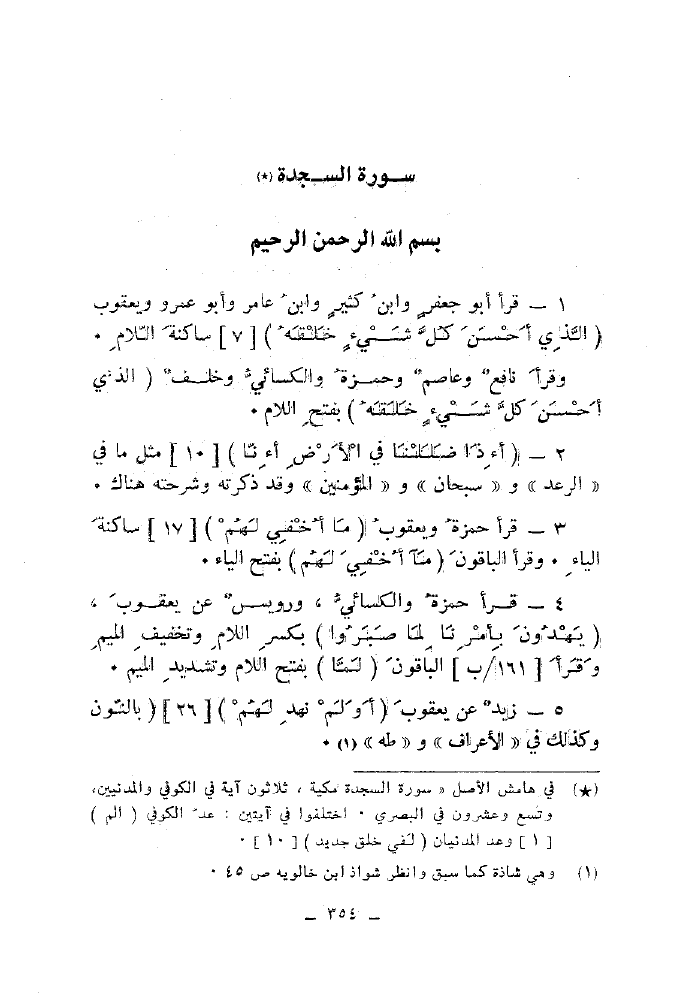 سورة السجدة (★)
بسم الله الرحمن الرحيم
١ – قرأ أبو جعفرٍ وابنُ كثيرٍ وابنُ عامر وأبو عمرو ويعقوب
( الَّذي أَحْسَنَ كُلَّ شَيْءٍ خَلْقَهُ ) [ ٧ ] ساكنةَ اللامِ ٠
وقرأَ نافعٌ وعاصمٌ وحمزةُ والكسائيُّ وخلفٌ ( الذي
أَحْسَنَ كلَّ شَيْءٍ خَلَقَهُ ) بفتحِ اللام ٠
٢ – ( أَءِذا ضَلَلْنا في الأَرْضِ أَءِنّا ) [ ١٠ ] مثل ما في
« الرعد » و « سبحان » و « المؤمنين » وقد ذكرته وشرحته هناك ٠
٣ – قرأ حمزةُ ويعقوبُ ( مَا أُخْفي لَهُمْ ) [ ١٧ ] ساكنةَ
الياءِ ٠ وقرأ الباقونَ ( مَآ أُخْفِيَ لَهُم ) بفتح الياء ٠
٤ – قرأ حمزةُ والكسائيُّ ، ورويسٌ عن يعقوبَ ،
( يَهْدُونَ بِأَمْرِنا لِما صَبَرُوا ) بكسرِ اللامِ وتخفيفِ الميمِ
وَقَرأَ [ ١٦١/ب ] الباقونَ ( لَمَّا ) بفتح اللام وتشديدِ الميم ٠
٥ – زيدٌ عن يعقوبَ ( أَوَلَمْ نهدِ لَهُمْ ) [ ٢٦ ] ( بالنّون
وكذلك في « الأعراف » و « طه » (١) ٠
(★) في هامش الأصل « سورة السجدة مكية ، ثلاثون آية في الكوفي والمدنيين،
وتسع وعشرون في البصري ٠ اختلفوا في آيتين : عدّ الكوفي ( الم )
[ ١ ] وعد المدنيان ( لفي خلق جديد ) [ ١٠ ] ٠
(١) وهي شاذة كما سبق وانظر شواذ ابن خالويه ص ٤٥ ٠
– ٣٥٤ –